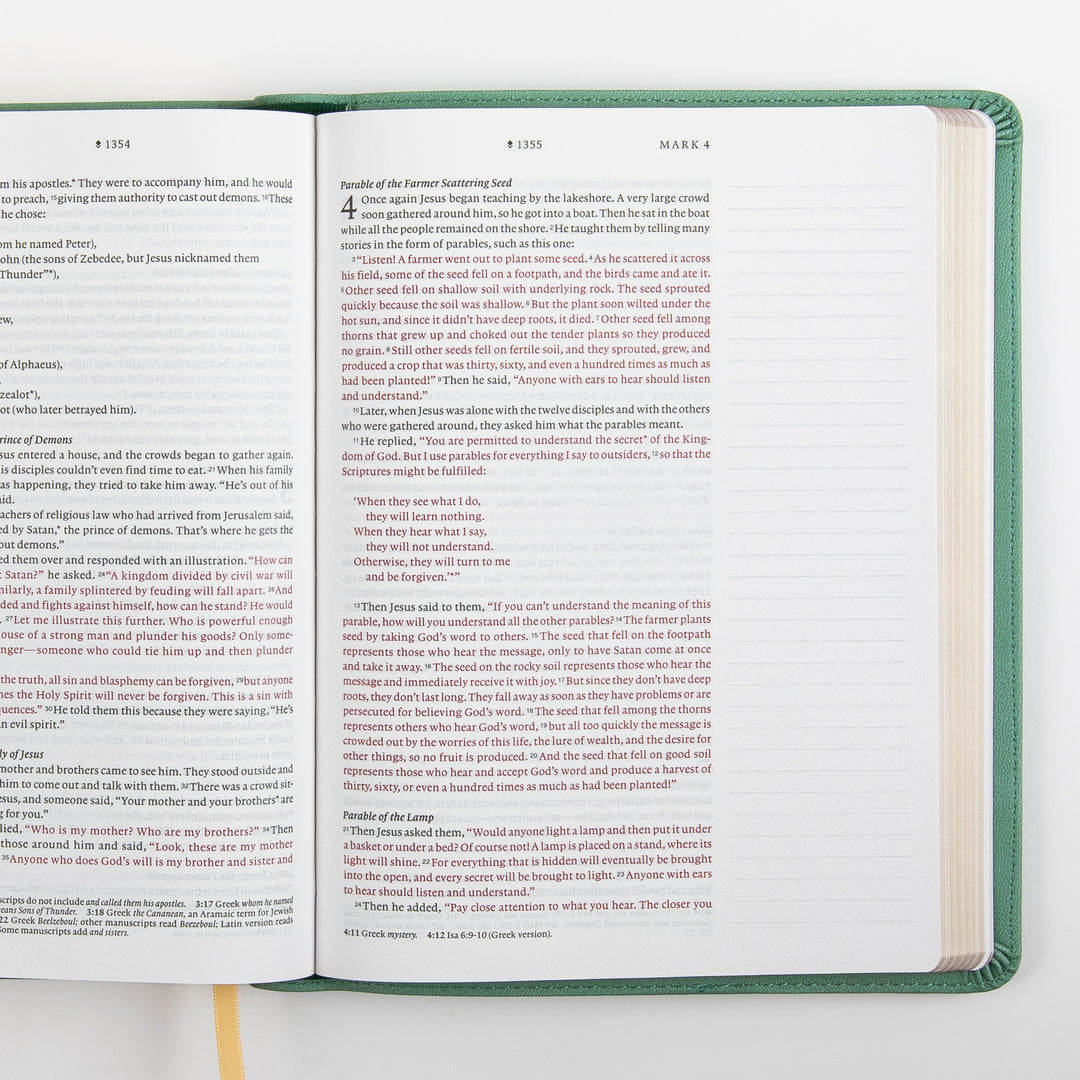 1354
m his apostles.* They were to accompany him, and he would
to preach, 15giving them authority to cast out demons. 16These
he chose:
om he named Peter),
ohn (the sons of Zebedee, but Jesus nicknamed them
Thunder”*),
ew,
of Alphaeus),
zealot*),
ot (who later betrayed him).
rince of Demons
sus entered a house, and the crowds began to gather again.
is disciples couldn’t even find time to eat. 21When his family
as happening, they tried to take him away. “He’s out of his
aid.
achers of religious law who had arrived from Jerusalem said,
ed by Satan,* the prince of demons. That’s where he gets the
out demons.”
ed them over and responded with an illustration. “How can
t Satan?” he asked. 24“A kingdom divided by civil war will
milarly, a family splintered by feuding will fall apart. 26And
ded and fights against himself, how can he stand? He would
. 27Let me illustrate this further. Who is powerful enough
ouse of a strong man and plunder his goods? Only some-
nger—someone who could tie him up and then plunder
the truth, all sin and blasphemy can be forgiven, 29but anyone
nes the Holy Spirit will never be forgiven. This is a sin with
quences.” 30He told them this because they were saying, “He’s
n evil spirit.”
ly of Jesus
mother and brothers came to see him. They stood outside and
him to come out and talk with them. 32There was a crowd sit-
esus, and someone said, “Your mother and your brothers* are
g for you.”
lied, “Who is my mother? Who are my brothers?” 34Then
those around him and said, “Look, these are my mother
35Anyone who does God’s will is my brother and sister and
scripts do not include and called them his apostles. 3:17 Greek whom he named
eans Sons of Thunder. 3:18 Greek the Cananean, an Aramaic term for Jewish
22 Greek Beelzeboul; other manuscripts read Beezeboul; Latin version reads
Some manuscripts add and sisters.
1355 MARK 4
Parable of the Farmer Scattering Seed
4 Once again Jesus began teaching by the lakeshore. A very large crowd
soon gathered around him, so he got into a boat. Then he sat in the boat
while all the people remained on the shore. 2He taught them by telling many
stories in the form of parables, such as this one:
3“Listen! A farmer went out to plant some seed. 4As he scattered it across
his field, some of the seed fell on a footpath, and the birds came and ate it.
5Other seed fell on shallow soil with underlying rock. The seed sprouted
quickly because the soil was shallow. 6But the plant soon wilted under the
hot sun, and since it didn’t have deep roots, it died. 7Other seed fell among
thorns that grew up and choked out the tender plants so they produced
no grain. 8Still other seeds fell on fertile soil, and they sprouted, grew, and
produced a crop that was thirty, sixty, and even a hundred times as much as
had been planted!” 9Then he said, “Anyone with ears to hear should listen
and understand.”
10Later, when Jesus was alone with the twelve disciples and with the others
who were gathered around, they asked him what the parables meant.
11He replied, “You are permitted to understand the secret* of the King-
dom of God. But I use parables for everything I say to outsiders, 12so that the
Scriptures might be fulfilled:
‘When they see what I do,
they will learn nothing.
When they hear what I say,
they will not understand.
Otherwise, they will turn to me
and be forgiven.’*”
13Then Jesus said to them, “If you can’t understand the meaning of this
parable, how will you understand all the other parables? 14The farmer plants
seed by taking God’s word to others. 15The seed that fell on the footpath
represents those who hear the message, only to have Satan come at once
and take it away. 16The seed on the rocky soil represents those who hear the
message and immediately receive it with joy. 17But since they don’t have deep
roots, they don’t last long. They fall away as soon as they have problems or are
persecuted for believing God’s word. 18The seed that fell among the thorns
represents others who hear God’s word, 19but all too quickly the message is
crowded out by the worries of this life, the lure of wealth, and the desire for
other things, so no fruit is produced. 20And the seed that fell on good soil
represents those who hear and accept God’s word and produce a harvest of
thirty, sixty, or even a hundred times as much as had been planted!”
Parable of the Lamp
21Then Jesus asked them, “Would anyone light a lamp and then put it under
a basket or under a bed? Of course not! A lamp is placed on a stand, where its
light will shine. 22For everything that is hidden will eventually be brought
into the open, and every secret will be brought to light. 23Anyone with ears
to hear should listen and understand.”
24Then he added, “Pay close attention to what you hear. The closer you
4:11 Greek mystery. 4:12 Isa 6:9-10 (Greek version).